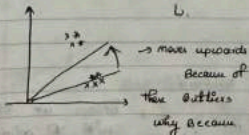 L.
→ moves upwards
Because of
these outliers
why Because